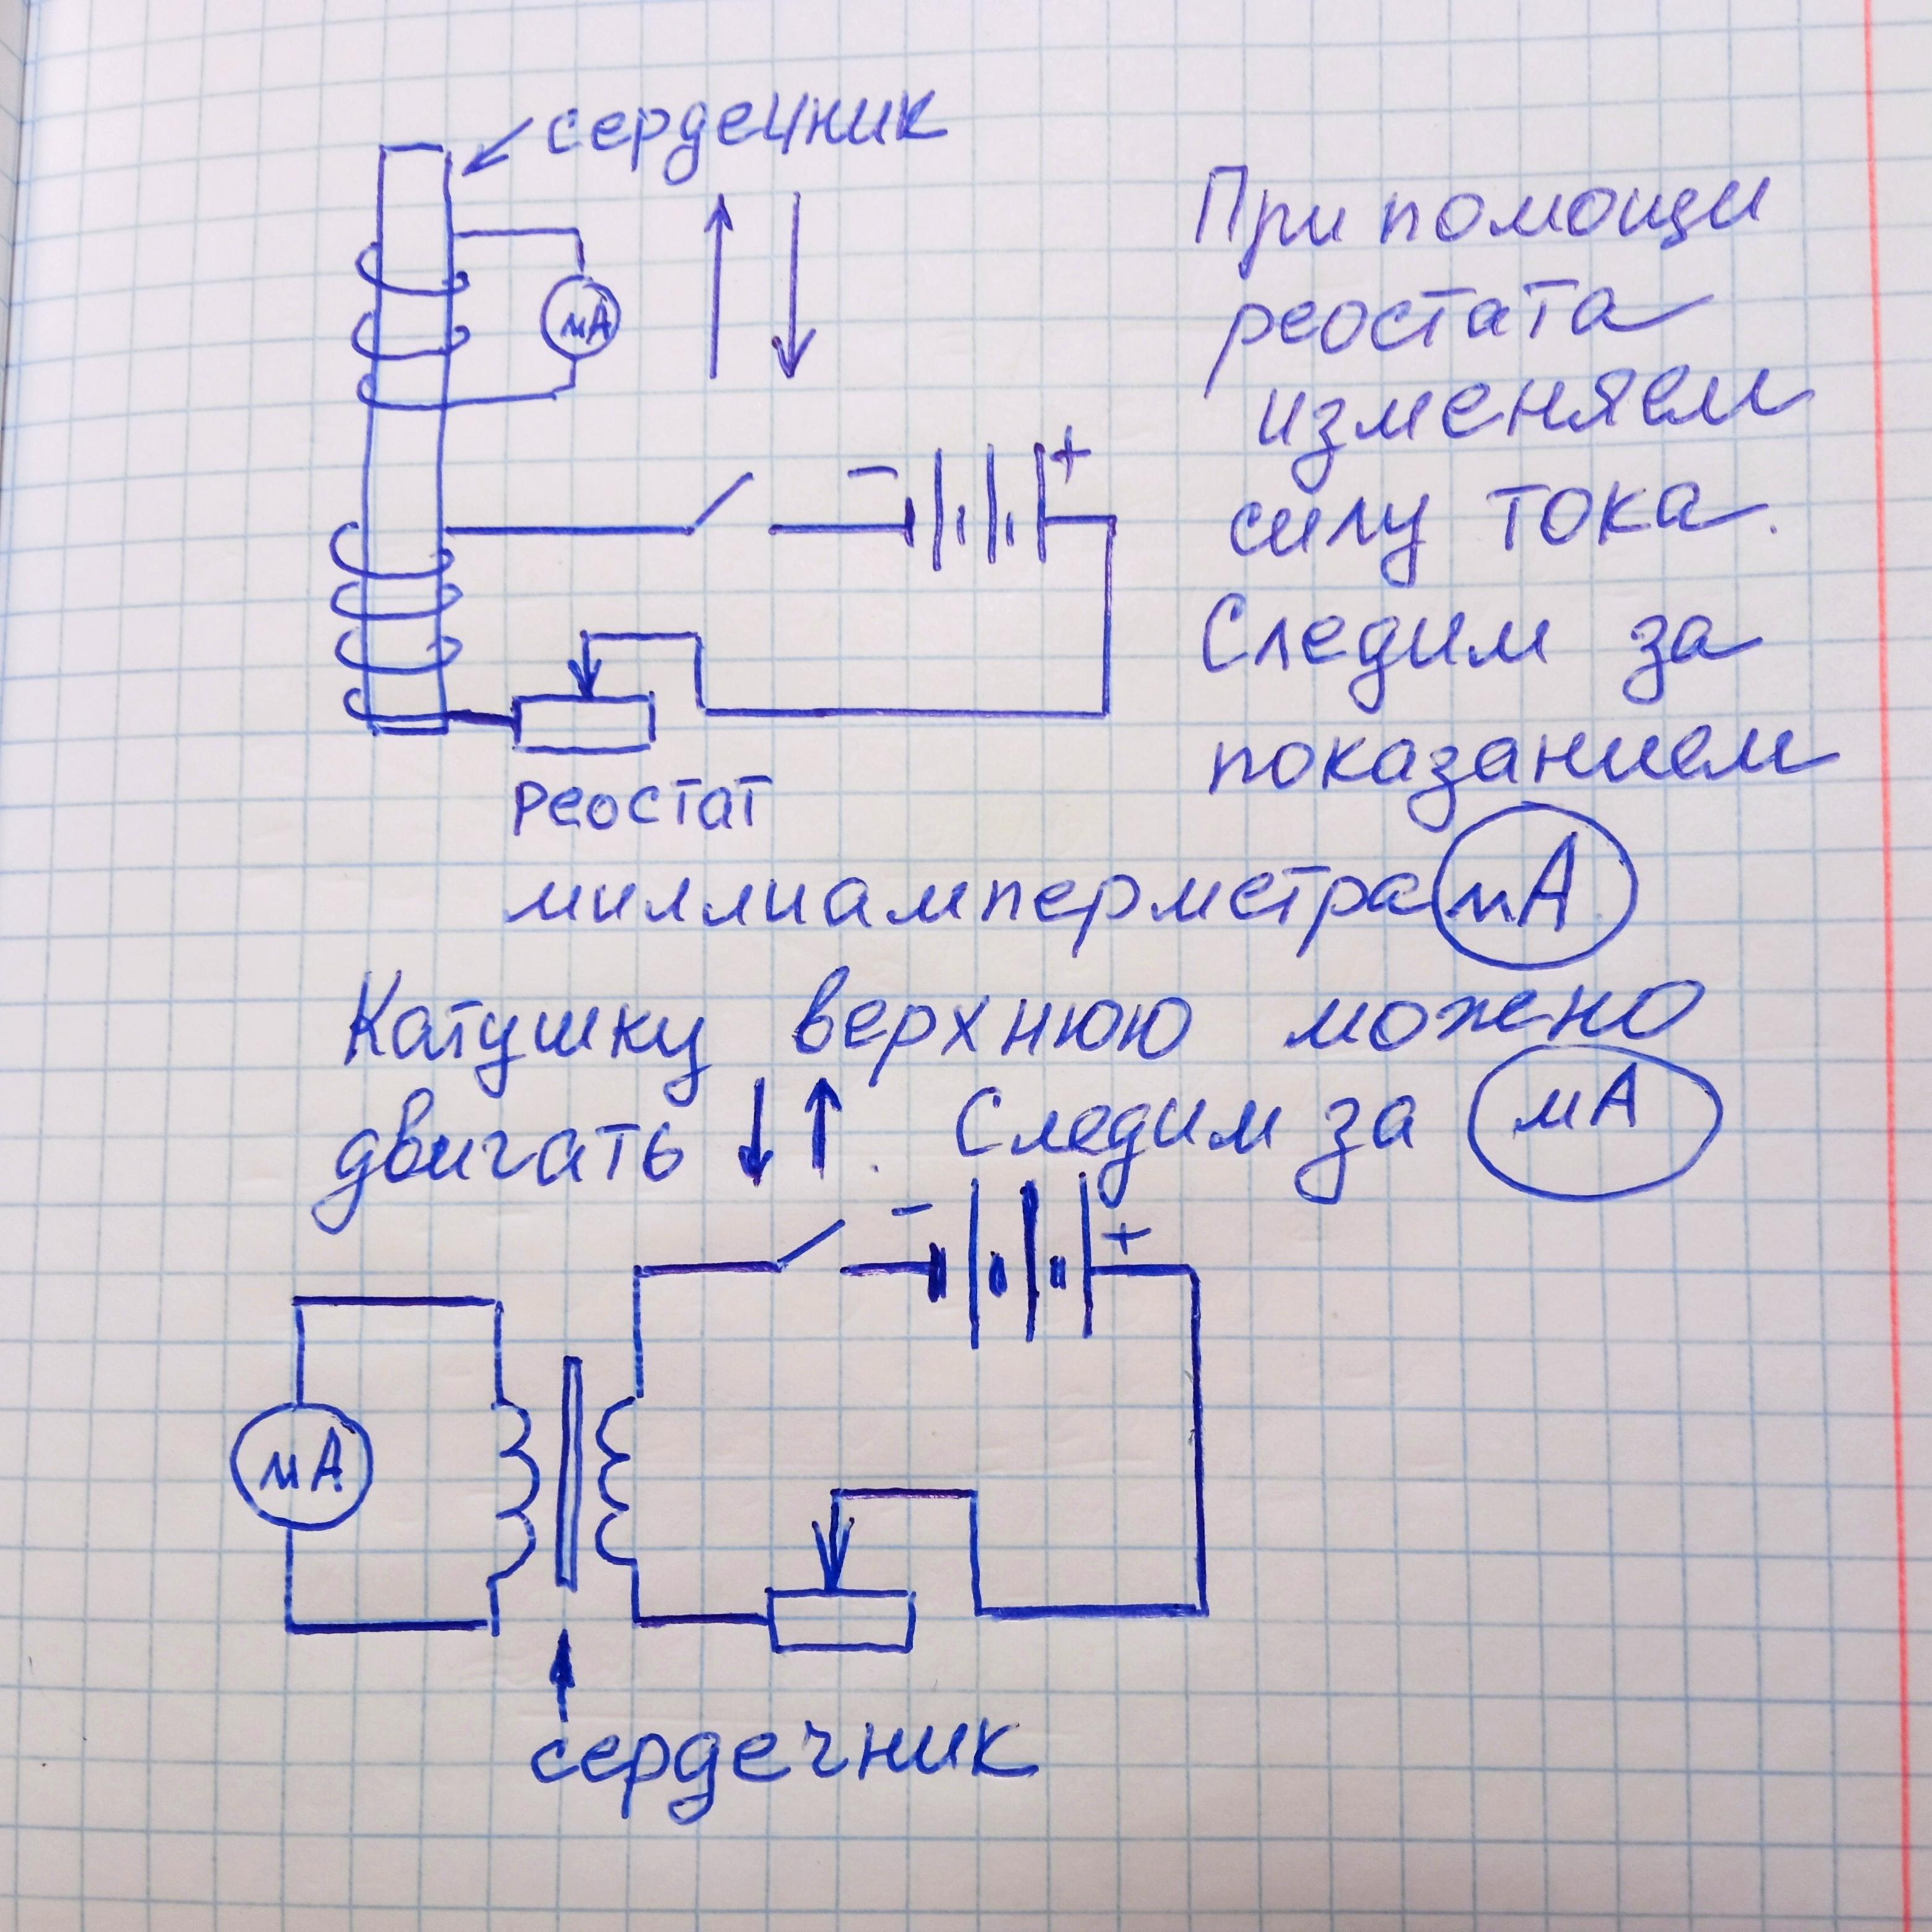 сердечник
мА
При помощи
реостата
изменяем
силу тока.
- +
Следим за
показанием
реостат
миллиамперметра мА
Катушку верхнюю можно
двигать ↓↑. Следим за мА
- +
мА
сердечник